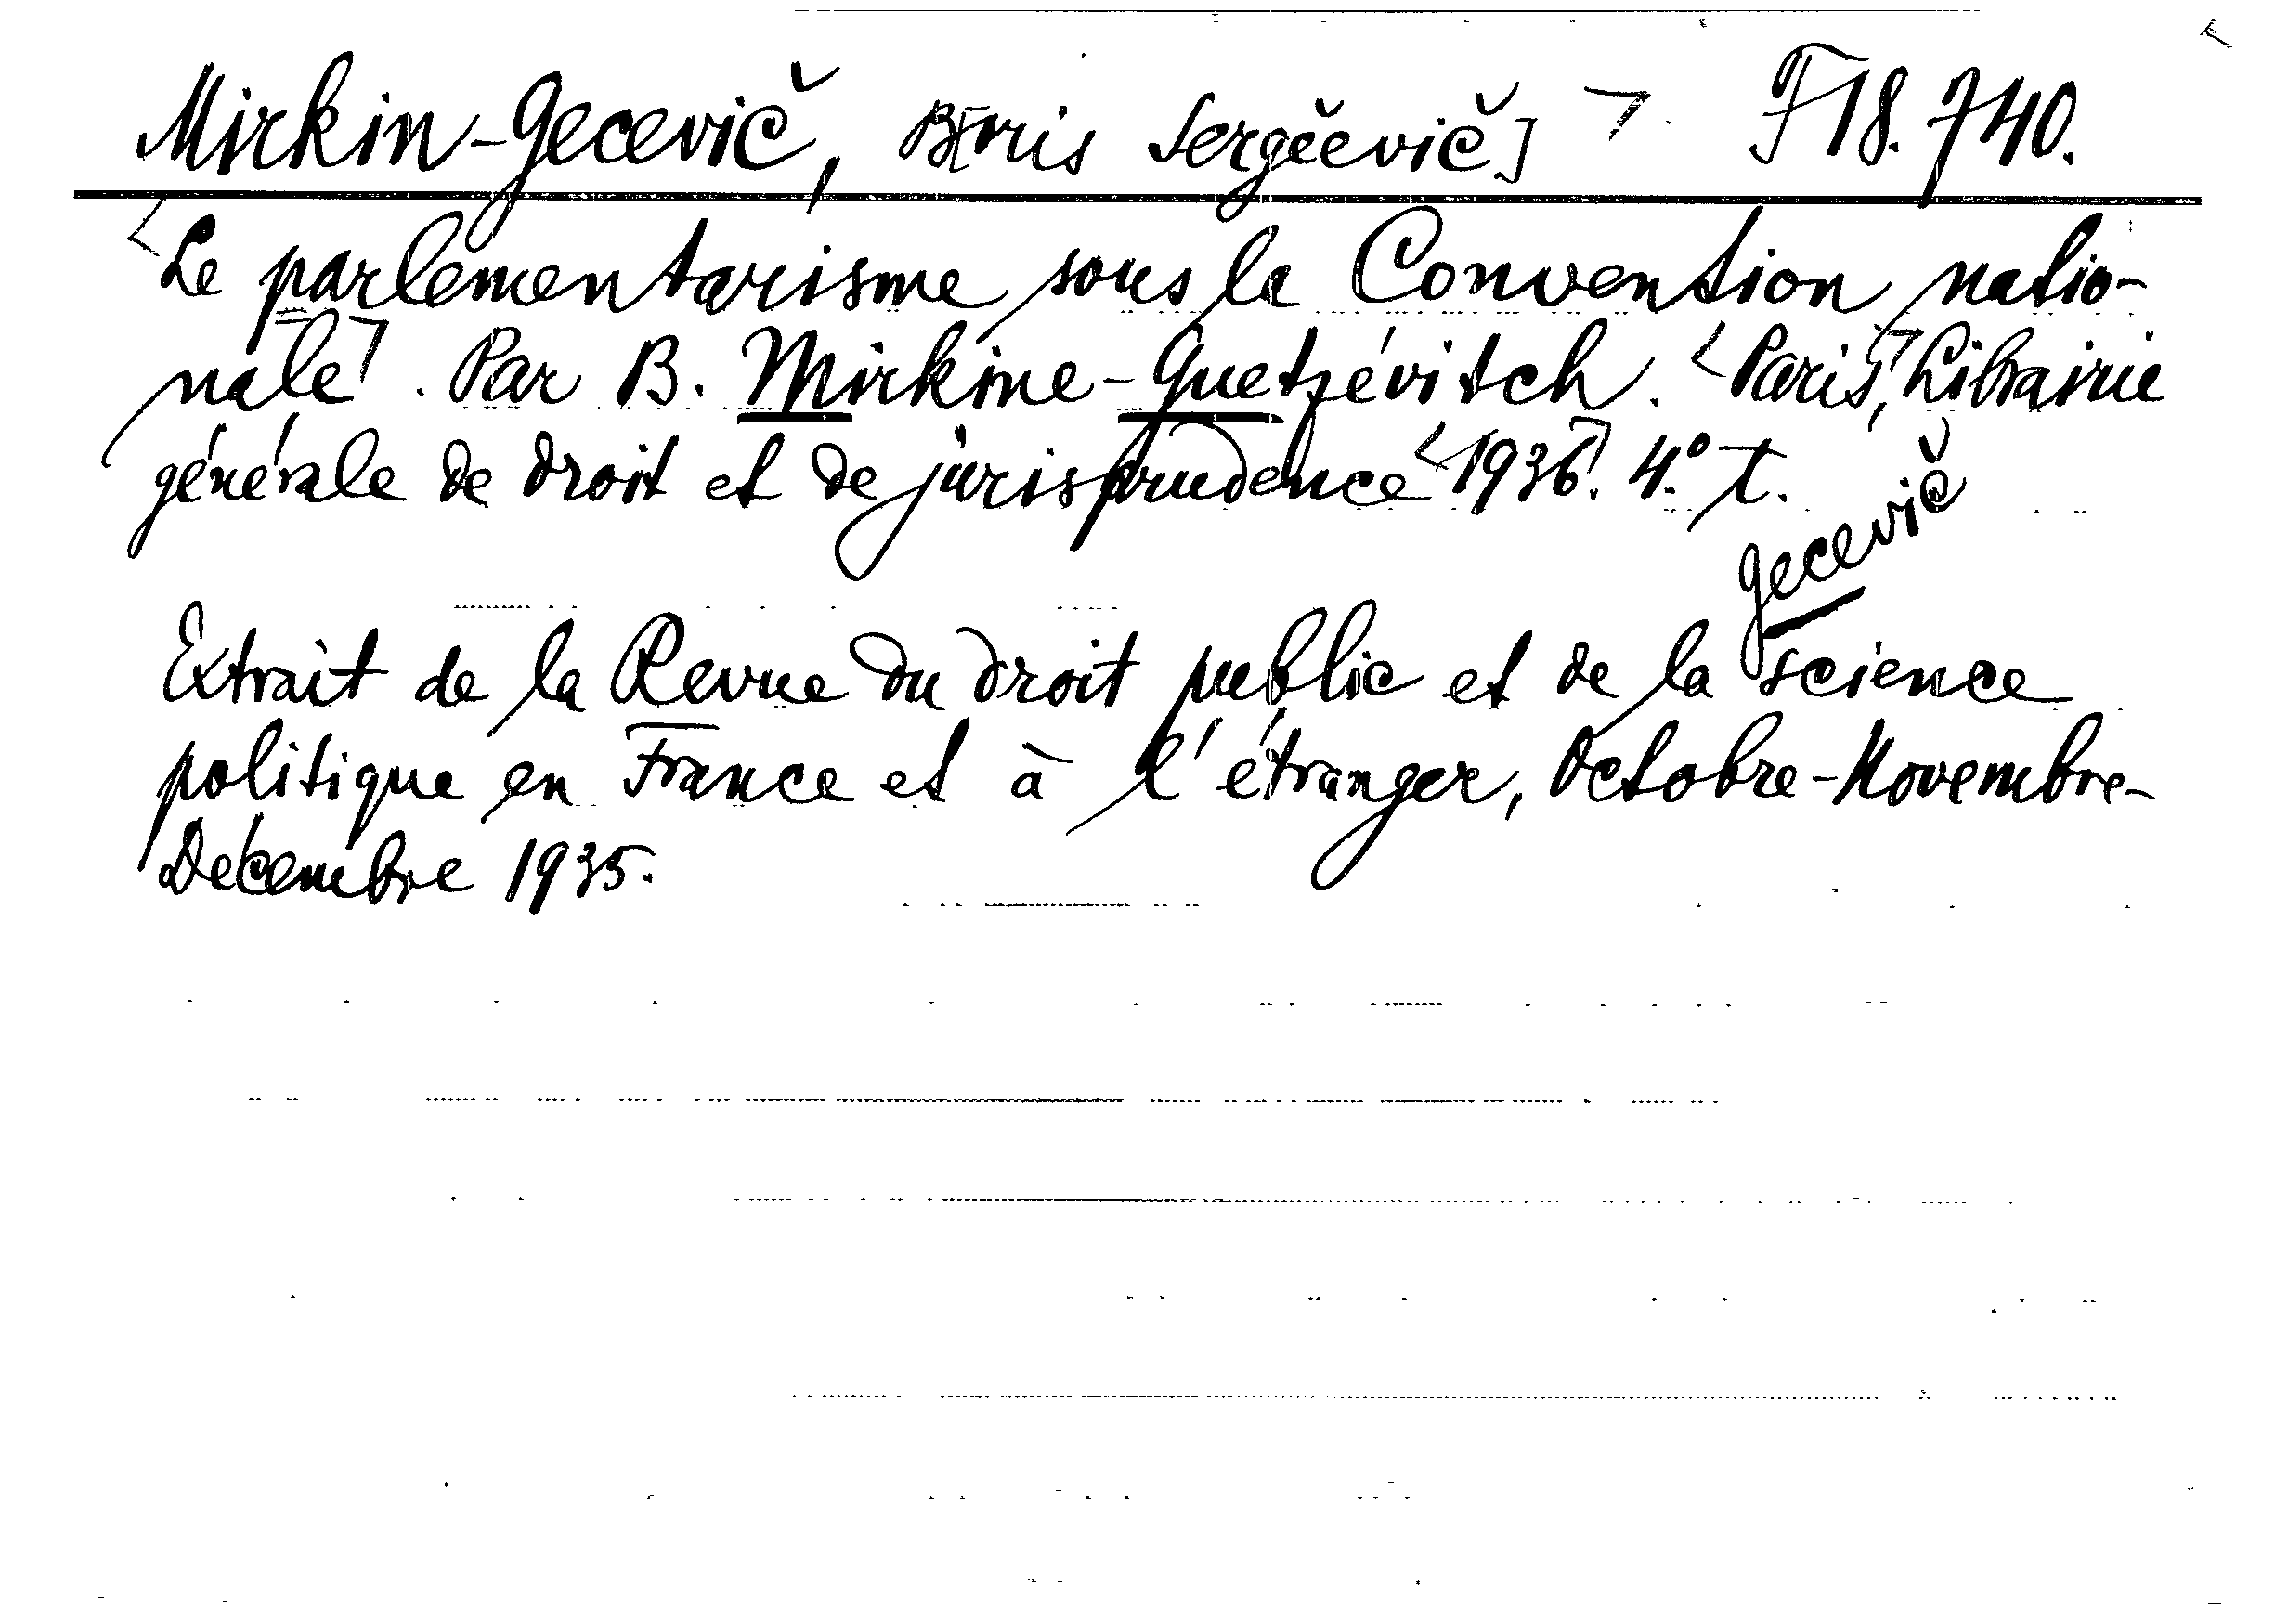 Mirkin-Gecevič, B[oris Sergěevič] F 18.740.
Le parlementarisme sous la Convention natio-
nale. Par B. Mirkine-Guetzévitch. Paris, Librairie
générale de droit et de jurisprudence 1936. 4.° T.
Gecevič
Extrait de la Revue du droit public et de la science
politique en France et à l'étranger, Octobre-Novembre-
Décembre 1935.